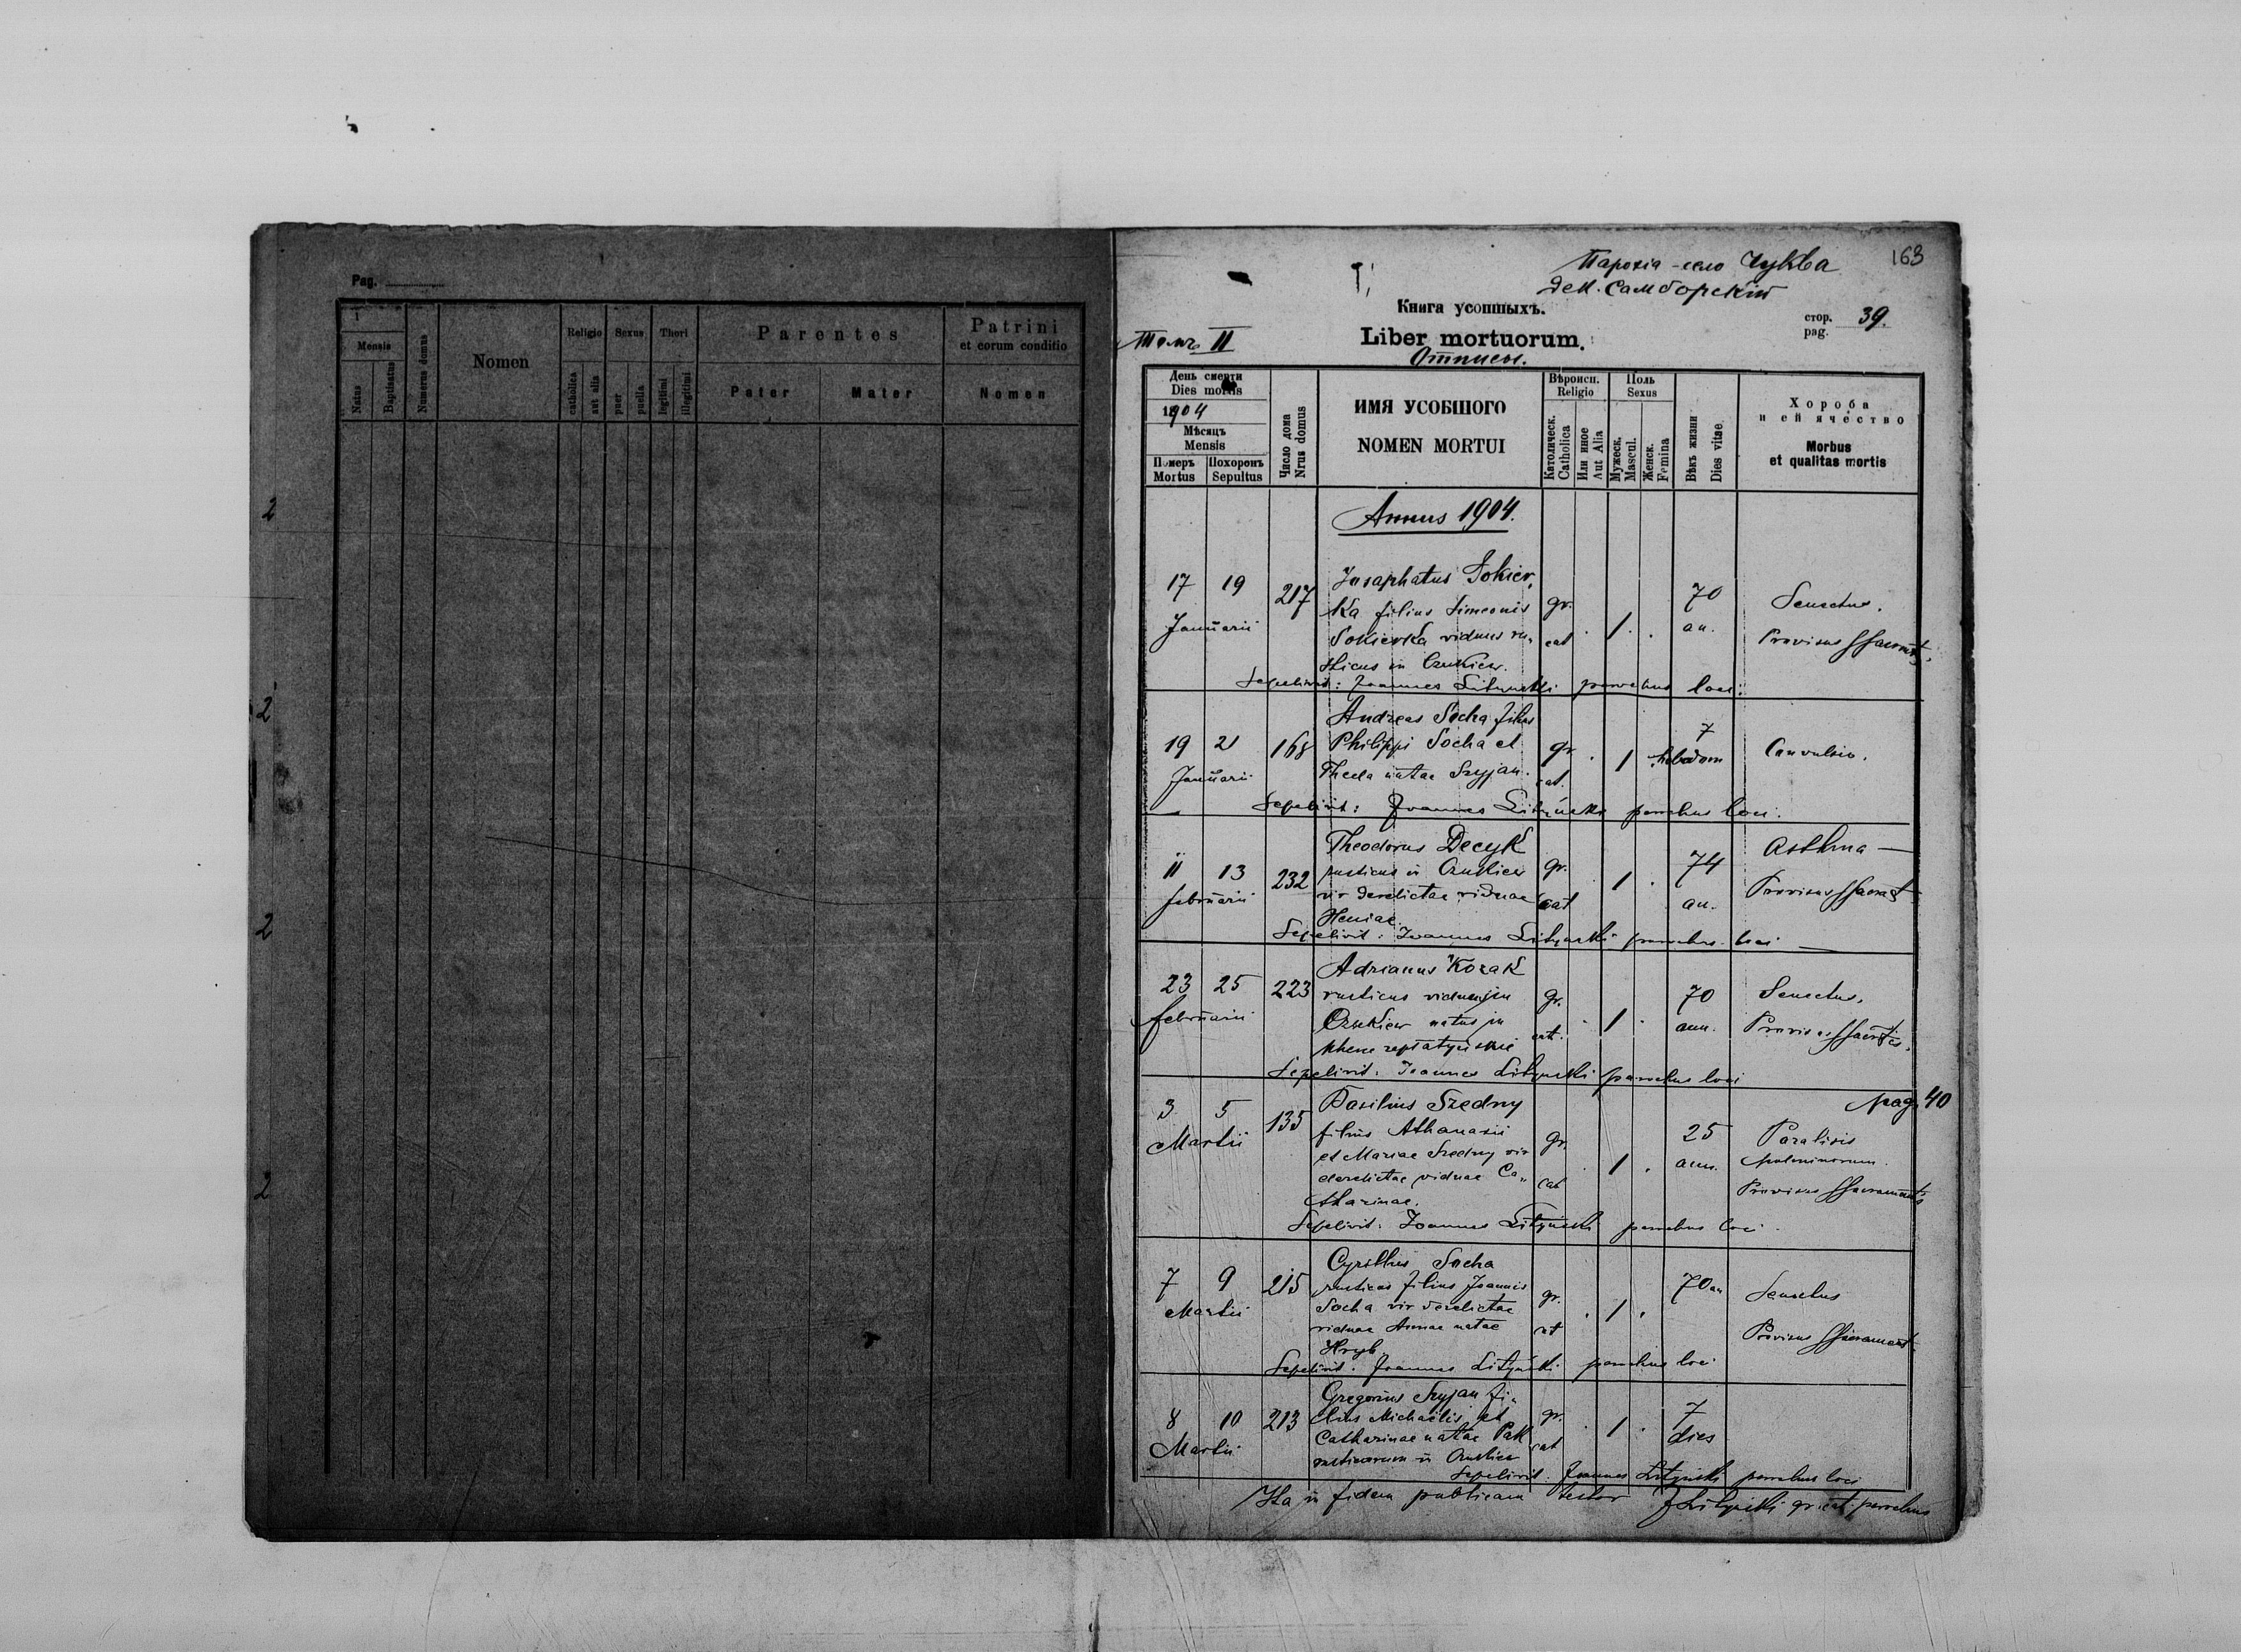 Pag.
1
Mensis
Natus
Baptisatus
Numerus domus
Nomen
Religio
catholica
aut alia
Sexus
puer
puella
Thori
legitimi
illegitimi
Parentes
Pater
Mater
Patrini
et eorum conditio
Nomen
2
2
2
2
163
Парохія - село Чуква
Дек. Самборскій
Книга усопшыхъ.
стор.
pag. 39.
Томъ II
Liber mortuorum.
Отписы.
День смерти
Dies mortis
1904
Мѣсяцъ
Mensis
Померъ
Mortus
Похоронъ
Sepultus
Число дома
Nrus domus
ИМЯ УСОБШОГО
NOMEN MORTUI
Вѣроисп.
Religio
Католическ.
Catholica
Или иное
Aut Alia
Поль
Sexus
Мужеск.
Mascul.
Женск.
Femina
Вѣкъ жизни
Dies vitae
Хороба
и ей ячество
Morbus
et qualitas mortis
Annus 1904.
17 19 Januarii 217
Josaphatus Sokiew,
ka filius Simeonis
Sokiewka viduus ru„
sticus in Czukiew.
gr. cat . 1 . 70 an.
Senectus.
Provisus SSacramts.
Sepelivit: Joannes Lityński parochus loci.
19 21 Januarii 168
Andreas Socha filius
Philippi Socha et
Thecla natae Szyjan.
gr. cat. . 1 7 hebdom
Convulsio.
Sepelivit: Joannes Lityński parochus loci.
11 13 februarii 232
Theodorus Decyk
rusticus in Czukiew
vir derelictae viduae
Heniae
gr. cat 1 . 74 an.
Asthma —
Provisus SSacramt
Sepelivit: Joannes Lityński parochus loci —
23 25 februarii 223
Adrianus Kozak
rusticus viduus in
Czukiew natus in
gr. cat. . 1 . 70 ann.
Senectus.
Provisus SSacrtis.
Sepelivit: Joannes Lityński parochus loci
pag 40
3 5 Martii 135
Basilius Szedny
filius Athanasii
et Mariae Szedny vir
derelictae viduae Ca„
tharinae.
gr. cat . 1 . 25 ann.
Paralisis
pulminorum.
Provisus SSacramants
Sepelivit: Joannes Lityński parochus loci.
7 9 Martii 215
Cyrillus Socha
rusticus filius Joannis
Socha vir derelictae
viduae Annae natae
Hryb.
gr. cat . 1 . 70 an
Senectus
Provisus SSacrament
Sepelivit: Joannes Lityński parochus loci
8 10 Martii 213
Gregorius Szyjan fi„
lius Michaëlis et
Catharinae natae Pak
rusticorum in Czukiew
gr. cat . 1 . 7 dies
Sepelivit: Joannes Lityński parochus loci
Ita in fidem publicam testor J Lityński gr. cat. parochus